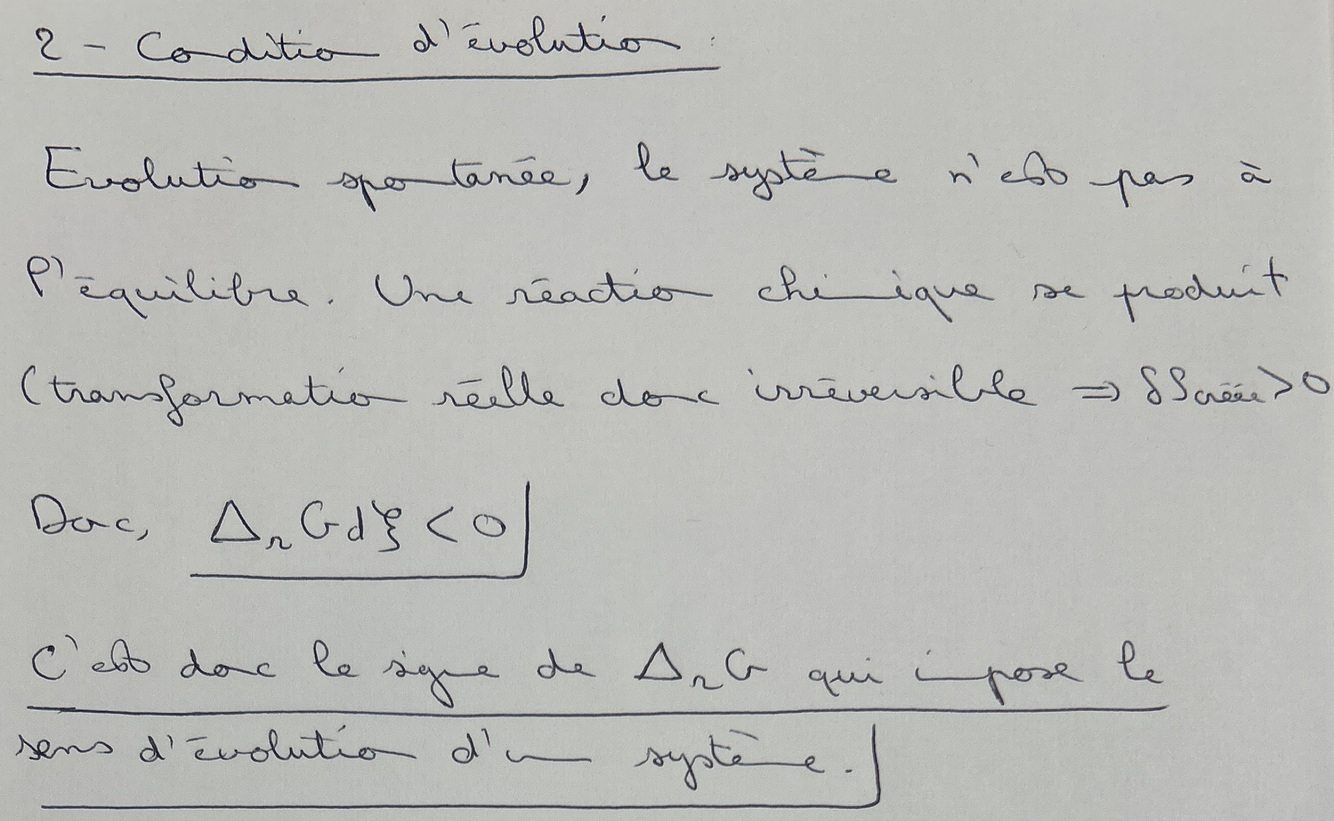 2 - Condition d'évolution :
Evolution spontanée, le système n'est pas à
l'équilibre. Une réaction chimique se produit
(transformation réelle donc irréversible => δScréée > 0
Donc, ΔrG dξ < 0
C'est donc le signe de ΔrG qui impose le
sens d'évolution d'un système.